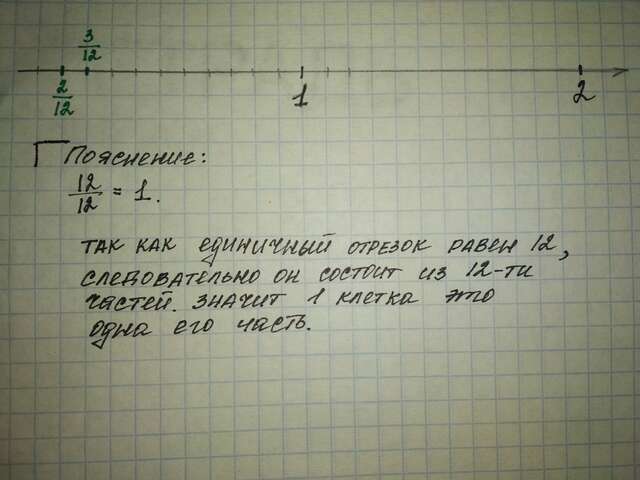 3/12
2/12
1
2
Пояснение:
12/12 = 1.
так как единичный отрезок равен 12,
следовательно он состоит из 12-ти
частей. значит 1 клетка это
одна его часть.